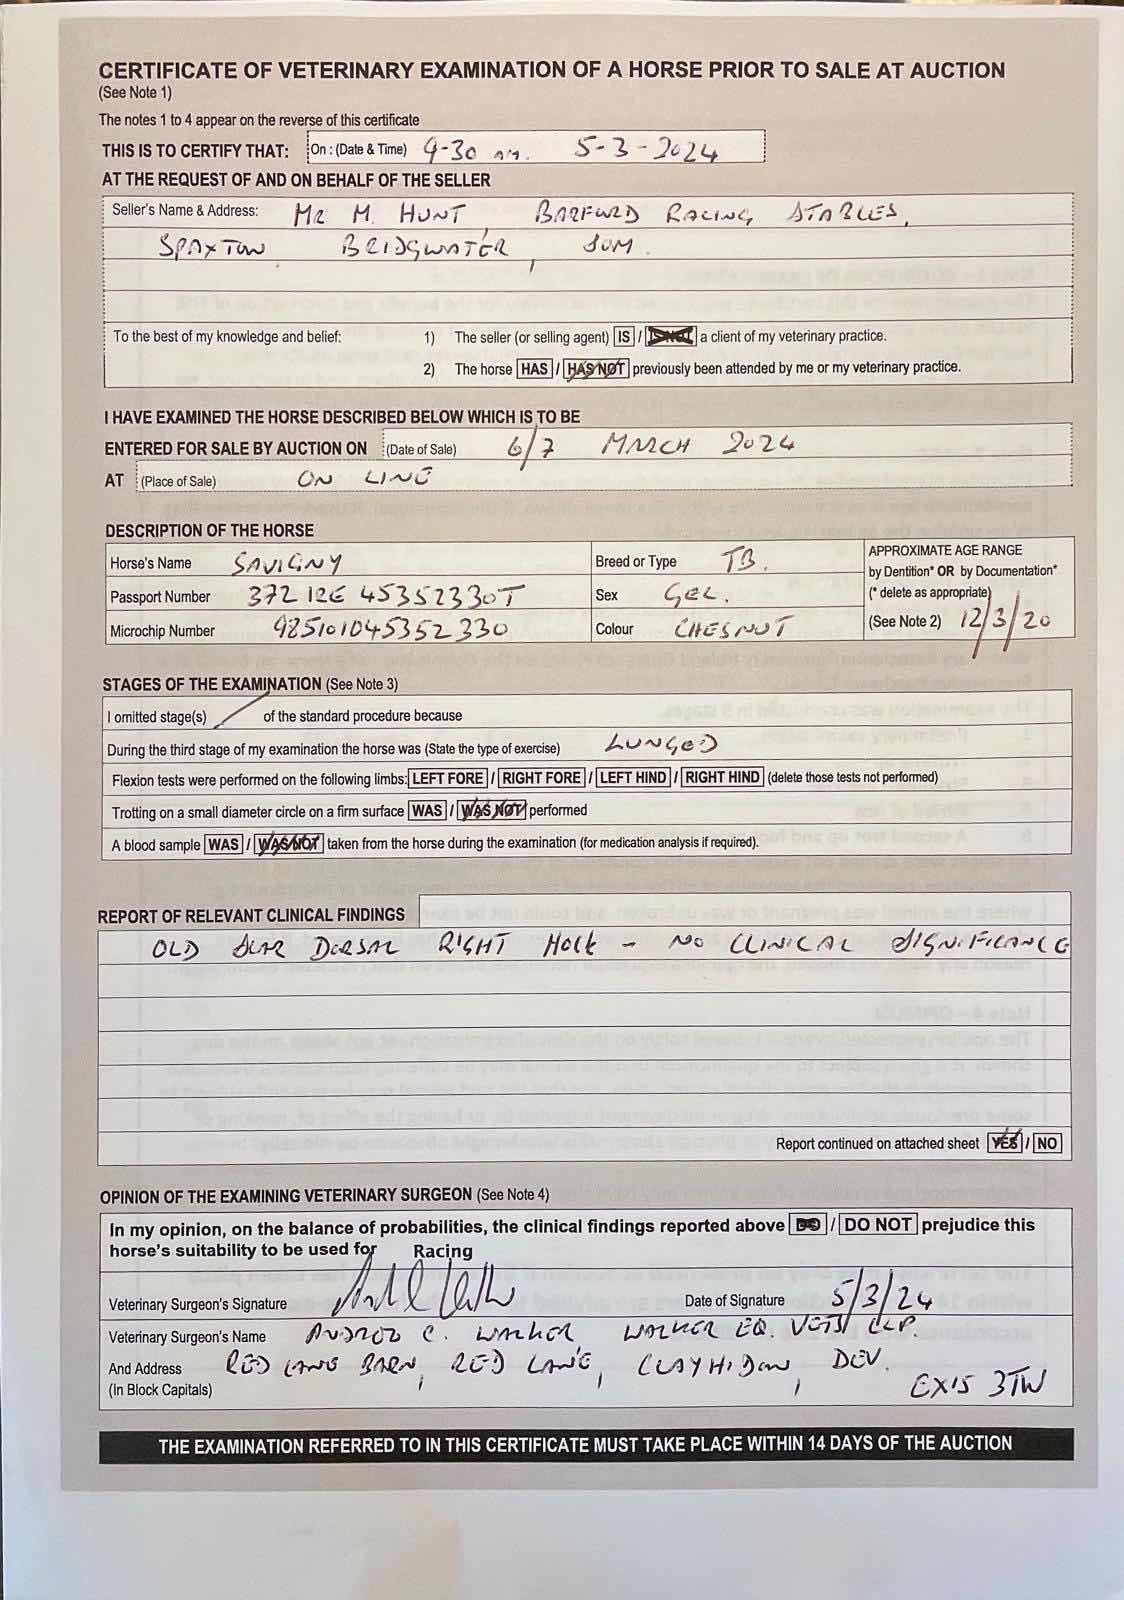 CERTIFICATE OF VETERINARY EXAMINATION OF A HORSE PRIOR TO SALE AT AUCTION
(See Note 1)
The notes 1 to 4 appear on the reverse of this certificate
THIS IS TO CERTIFY THAT: On : (Date & Time) 9-30 AM. 5-3-2024
AT THE REQUEST OF AND ON BEHALF OF THE SELLER
Seller's Name & Address: MR M. HUNT BARFORD RACING STABLES,
SPAXTON BRIDGWATER, SOM.
To the best of my knowledge and belief: 1) The seller (or selling agent) IS / IS NOT a client of my veterinary practice.
2) The horse HAS / HAS NOT previously been attended by me or my veterinary practice.
I HAVE EXAMINED THE HORSE DESCRIBED BELOW WHICH IS TO BE
ENTERED FOR SALE BY AUCTION ON (Date of Sale) 6/7 MARCH 2024
AT (Place of Sale) ON LINE
DESCRIPTION OF THE HORSE
Horse's Name SAVIGNY Breed or Type TB. APPROXIMATE AGE RANGE
by Dentition* OR by Documentation*
Passport Number 372 IRE 45352330T Sex GEL. (* delete as appropriate)
Microchip Number 985101045352330 Colour CHESNUT (See Note 2) 12/3/20
STAGES OF THE EXAMINATION (See Note 3)
I omitted stage(s) / of the standard procedure because
During the third stage of my examination the horse was (State the type of exercise) LUNGED
Flexion tests were performed on the following limbs: LEFT FORE / RIGHT FORE / LEFT HIND / RIGHT HIND (delete those tests not performed)
Trotting on a small diameter circle on a firm surface WAS / WAS NOT performed
A blood sample WAS / WAS NOT taken from the horse during the examination (for medication analysis if required).
REPORT OF RELEVANT CLINICAL FINDINGS
OLD SCAR DORSAL RIGHT HOCK - NO CLINICAL SIGNIFICANCE
Report continued on attached sheet YES / NO
OPINION OF THE EXAMINING VETERINARY SURGEON (See Note 4)
In my opinion, on the balance of probabilities, the clinical findings reported above DO / DO NOT prejudice this
horse's suitability to be used for Racing
Veterinary Surgeon's Signature Date of Signature 5/3/24
Veterinary Surgeon's Name C. WALKER WALKER EQ. VETS LLP.
And Address RED LANE BARN, RED LANE, CLAYHIDON, DEV.
(In Block Capitals) EX15 3TW
THE EXAMINATION REFERRED TO IN THIS CERTIFICATE MUST TAKE PLACE WITHIN 14 DAYS OF THE AUCTION